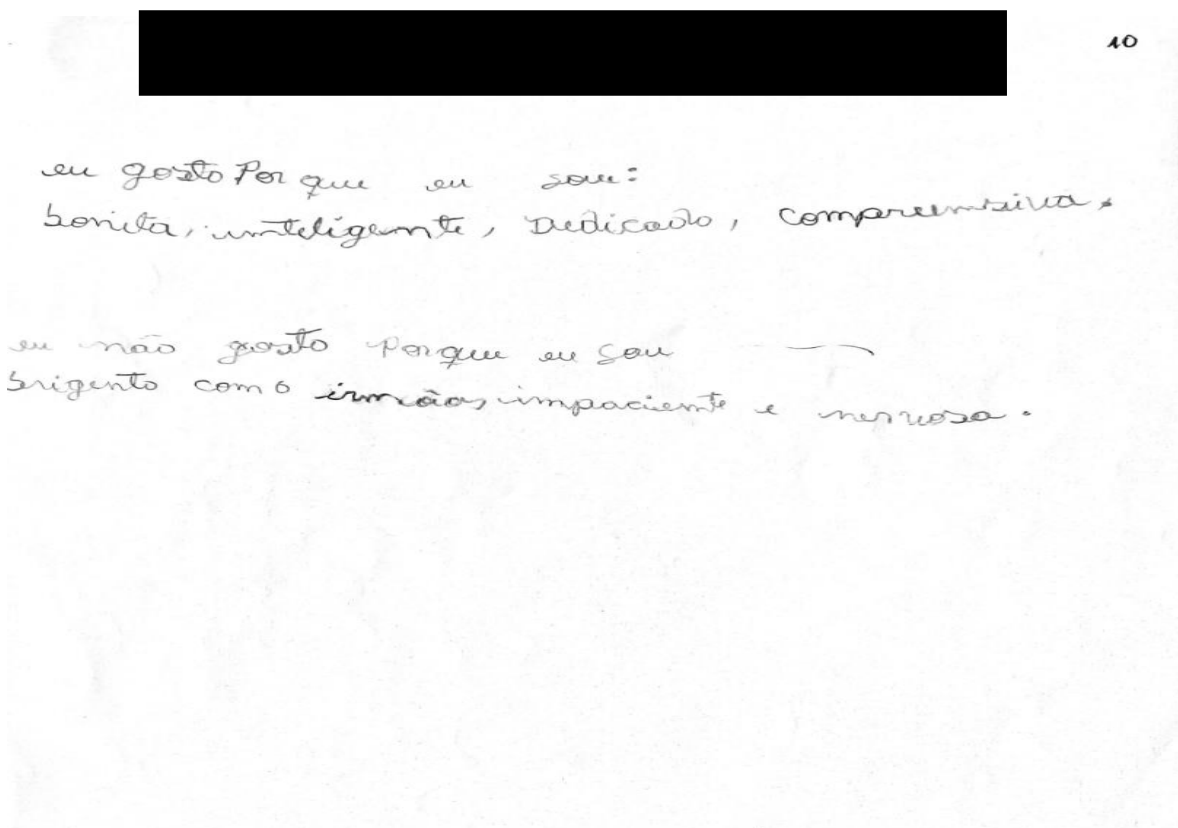 10
eu gosto Por que eu sou:
bonita, inteligente, Dedicado, compreensiva.
eu não gosto porque eu sou
brigento com o irmão, impaciente e nervosa.